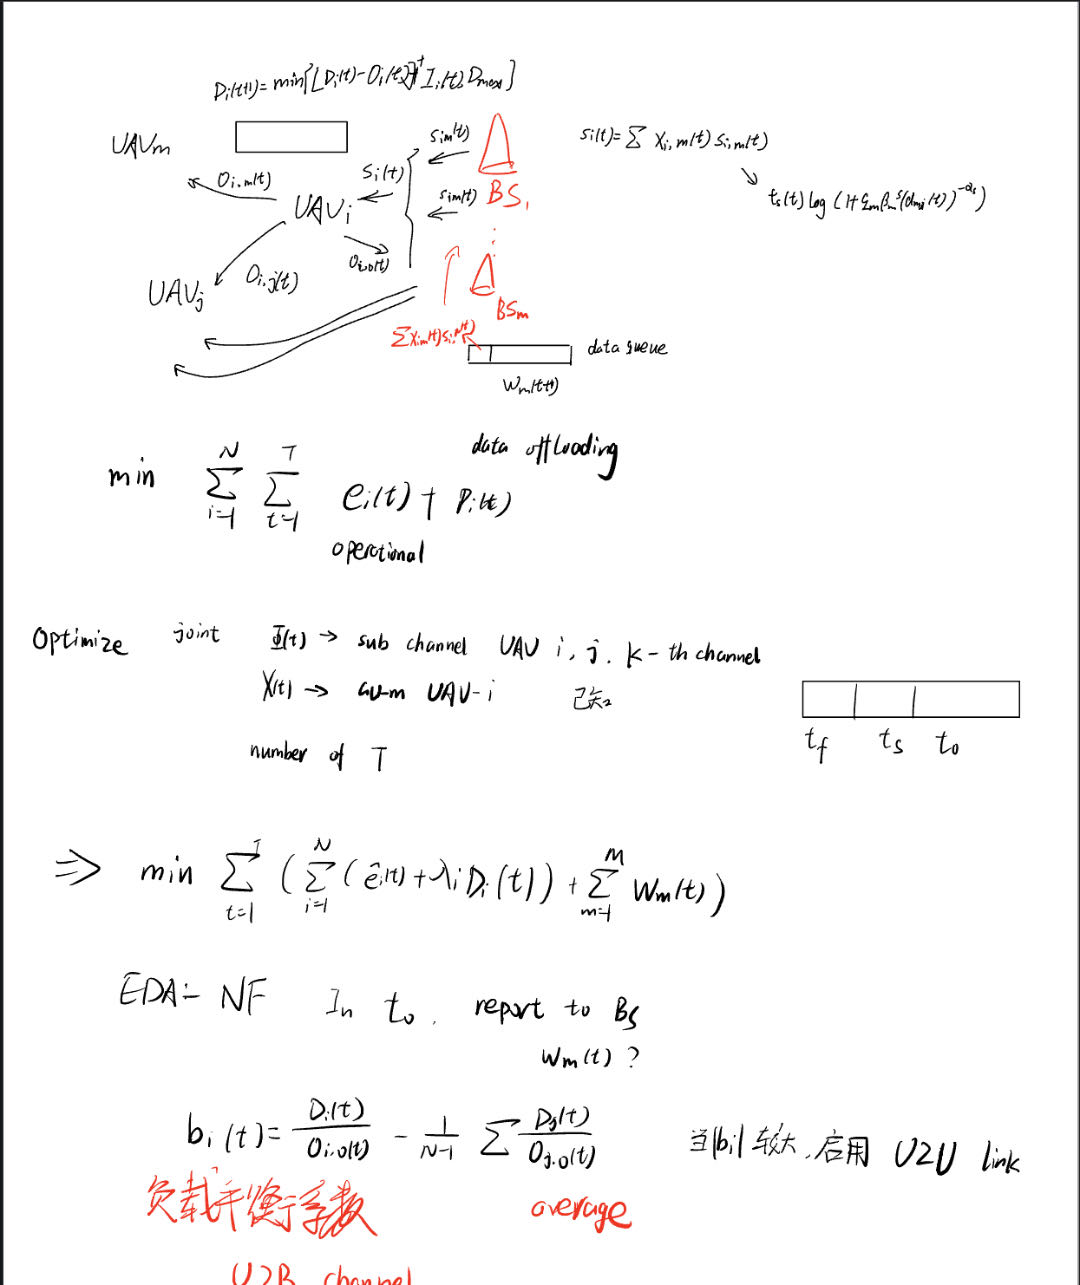 Di(t+1)=min{[Di(t)-Oi(t)]⁺ Ii(t), Dmax]
UAVm
Oi,m(t)
UAVi
Si(t)
Sim(t)
Sim(t)
BS1
Si(t)=∑ Xi,m(t) Si,m(t)
ts(t) log (1+
UAVj
Oi,j(t)
Oi,o(t)
BSm
data queue
Wm(t+1)
data offloading
min ∑_{i=1}^{N} ∑_{t=1}^{T} ei(t) + Pi(t)
operational
Optimize joint Φ(t) → sub channel UAV i, j, k-th channel
X(t) → UAV-i 已知
number of T
tf ts to
⇒ min ∑_{t=1}^{T} (∑_{i=1}^{N} (ei(t)+λiDi(t)) + ∑_{m=1}^{M} Wm(t))
EDA- NF In to, report to BS
Wm(t) ?
bi(t)= Di(t)/Oi,o(t) - 1/(N-1) ∑ Dj(t)/Oj,o(t) 当|bi|较大,启用 U2U link
负载平衡系数 average
U2B channel